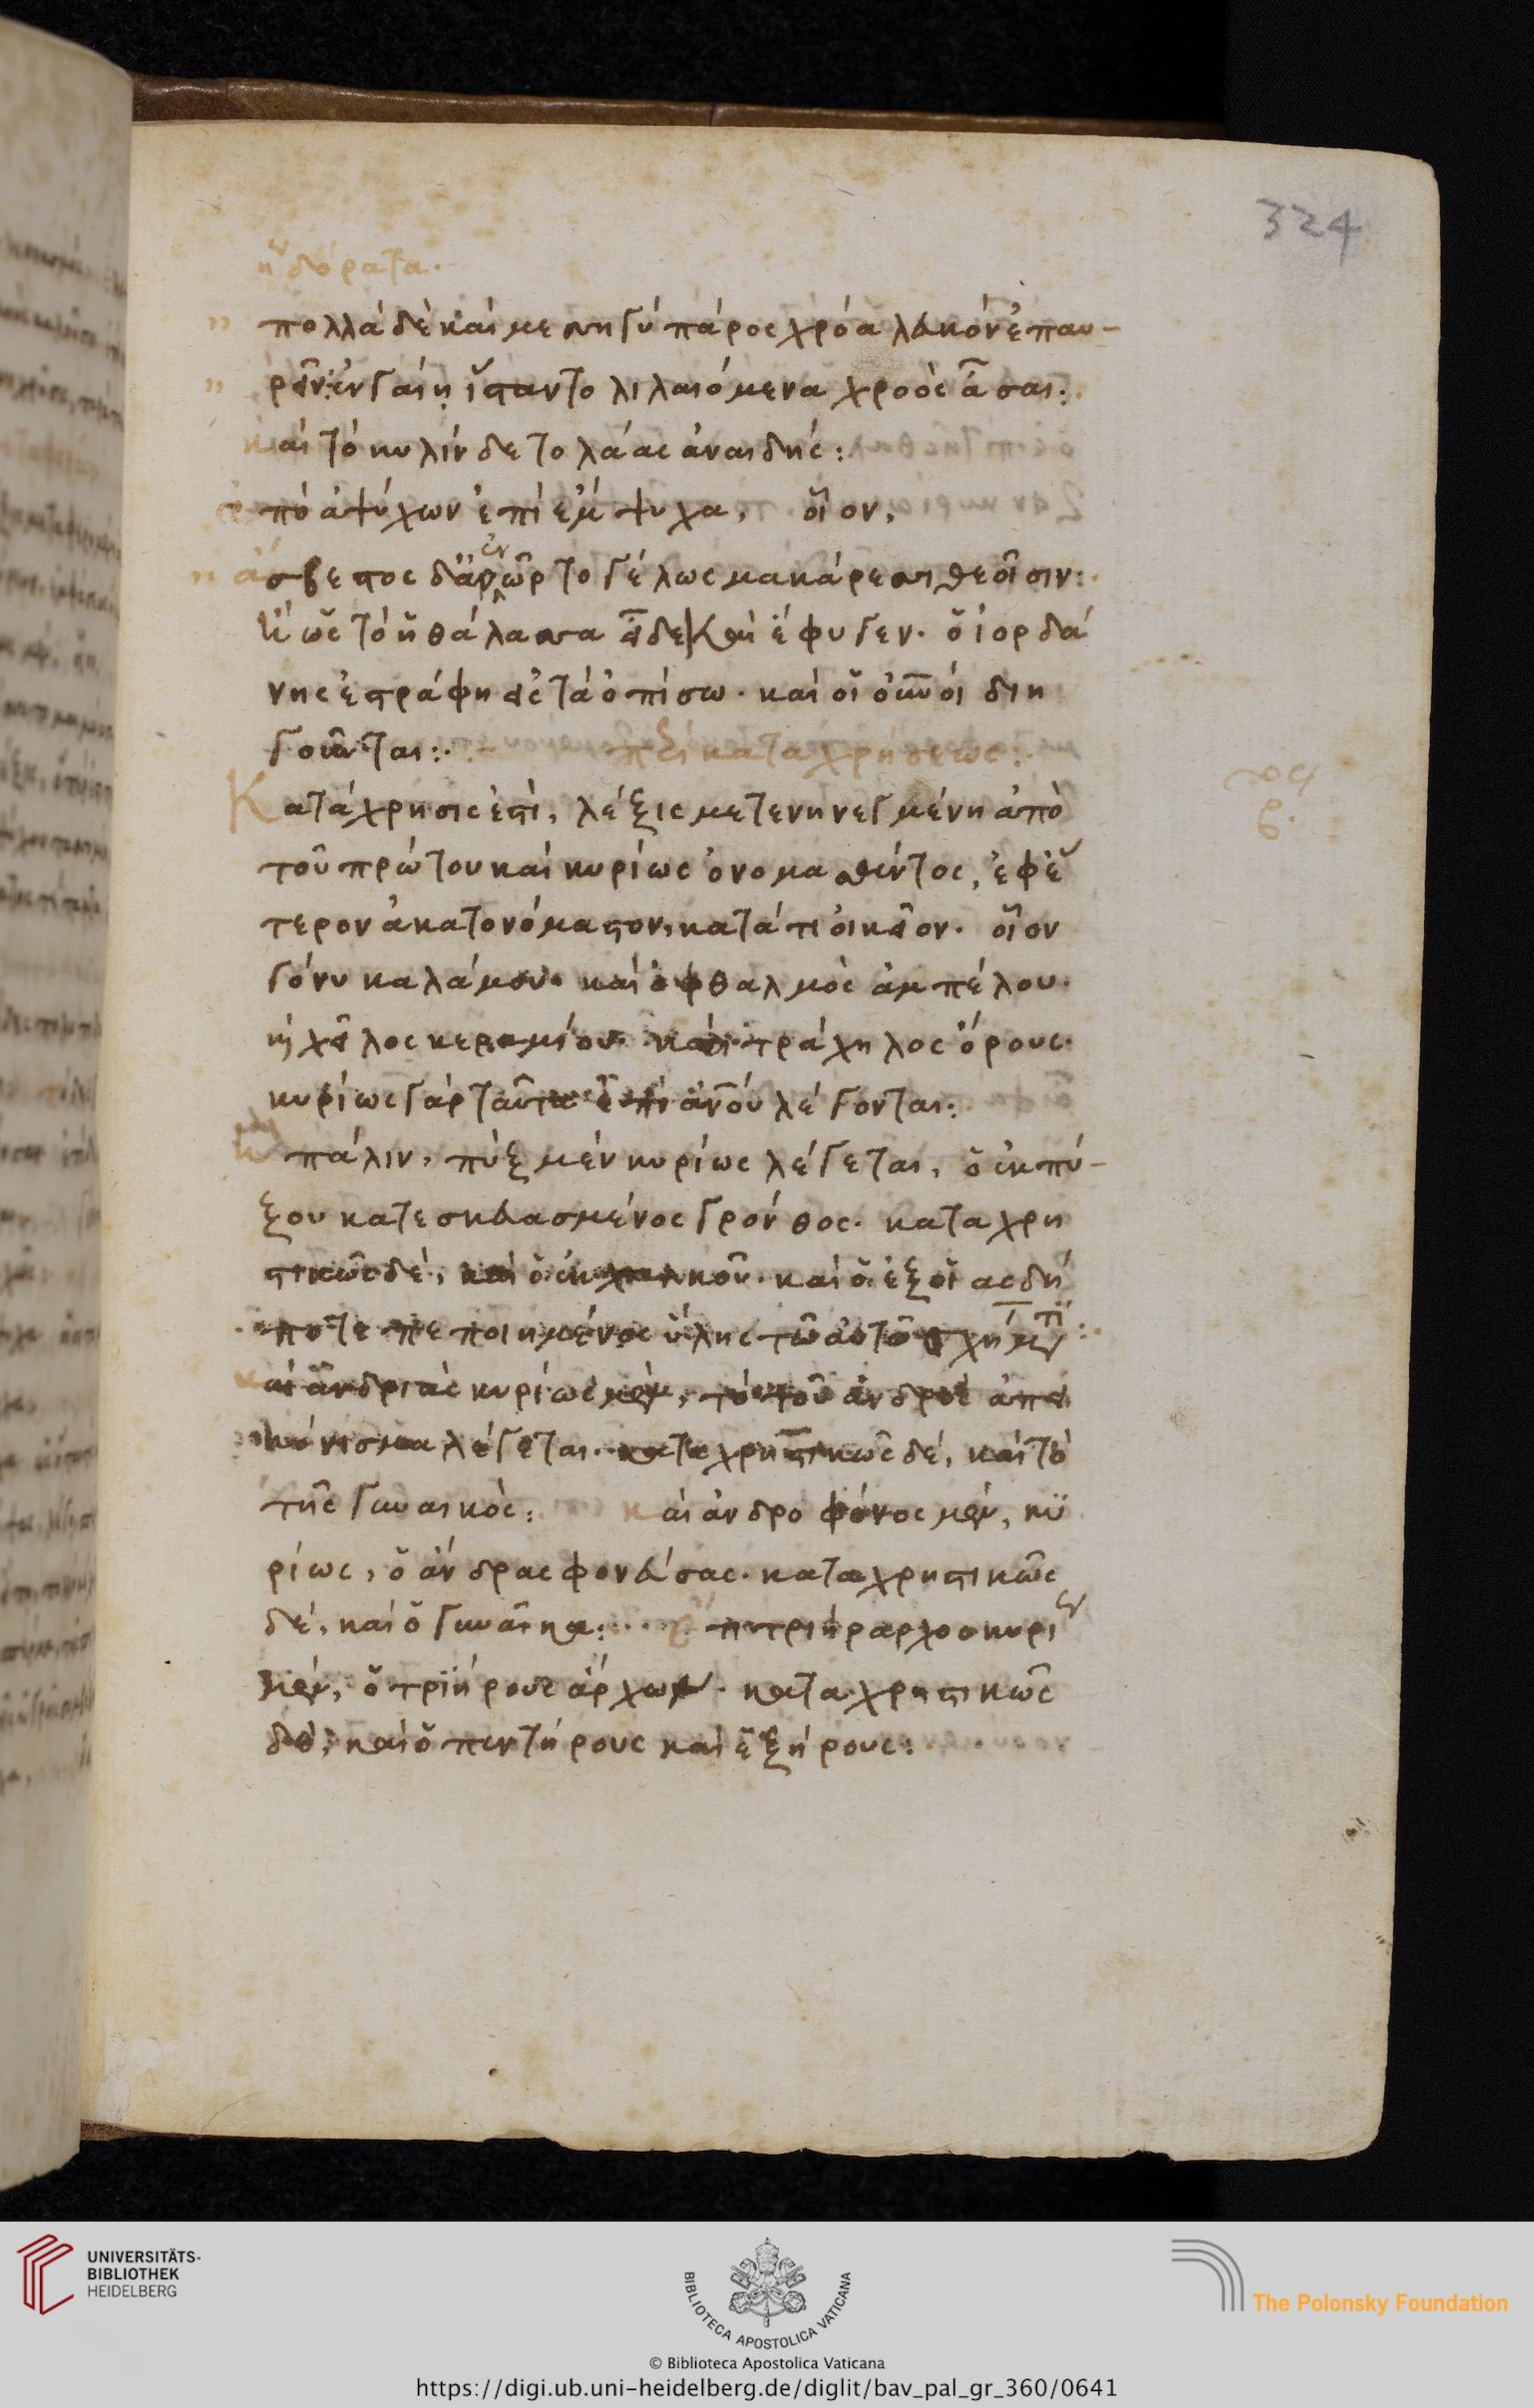 324
ἢ δόρατα.
πολλὰ δὲ καὶ μεσηγύ πάρος χρόα λευκόν ἐπαυ-
ρεῖν· ἐν γαίῃ ἵσταντο λιλαιόμενα χροὸς ἆσαι:
καὶ τὸ κυλίνδετο λᾶας ἀναιδής:
ἀπὸ ἀψύχων ἐπὶ ἔμψυχα, οἷον,
ἄσβεστος δ' ἄρ ἐνῶρτο γέλως μακάρεσσι θεοῖσιν:
κ ὡς τὸ ἡ θάλασσα εἶδε καὶ ἔφυγεν. ὁ ἰορδά
νης ἐστράφη εἰς τὰ ὀπίσω. καὶ οἱ οὐνοί διη
γοῦνται:
περὶ καταχρήσεως:
Κατάχρησις ἐστὶ, λέξις μετενηνεγμένη ἀπὸ
τοῦ πρώτου καὶ κυρίως ὀνομασθέντος, ἐφ' ἕ
τερον ἀκατονόμαστον, κατά τι οἰκεῖον. οἷον
γόνυ καλάμου. καὶ ὀφθαλμὸς ἀμπέλου.
ἢ χεῖλος κεραμίου. καὶ τράχηλος ὄρους.
κυρίως γὰρ ταῦτα ἐπὶ ἀνου λέγονται:
κ πάλιν, πὺξ μὲν κυρίως λέγεται, ὁ ἐκ πύ-
ξου κατεσκευασμένος γρόνθος. καταχρη
στικῶς δέ, καὶ ὁ ἐκ χαλκοῦ. καὶ ὁ ἐξ οἵας δή
ποτε πεποιημένος ὕλης τῶ αὐτῶ
καὶ ἀνδριὰς κυρίως μέν, τὸ τοῦ ἀνδρὸς ἀπει
κόνισμα λέγεται. καταχρηστικῶς δέ, καὶ τὸ
τῆς γυναικὸς: καὶ ἀνδροφόνος μέν, κυ
ρίως, ὁ ἄνδρας φονεύσας. καταχρηστικῶς
δέ, καὶ ὁ γυναῖκα: τριήραρχος κυρί
μέν, ὁ τριήρους ἄρχων. καταχρηστικῶς
δέ, καὶ ὁ πεντήρους καὶ ἑξήρους:
UNIVERSITÄTS-
BIBLIOTHEK
HEIDELBERG
BIBLIOTECA APOSTOLICA VATICANA
The Polonsky Foundation
© Biblioteca Apostolica Vaticana
https://digi.ub.uni-heidelberg.de/diglit/bav_pal_gr_360/0641